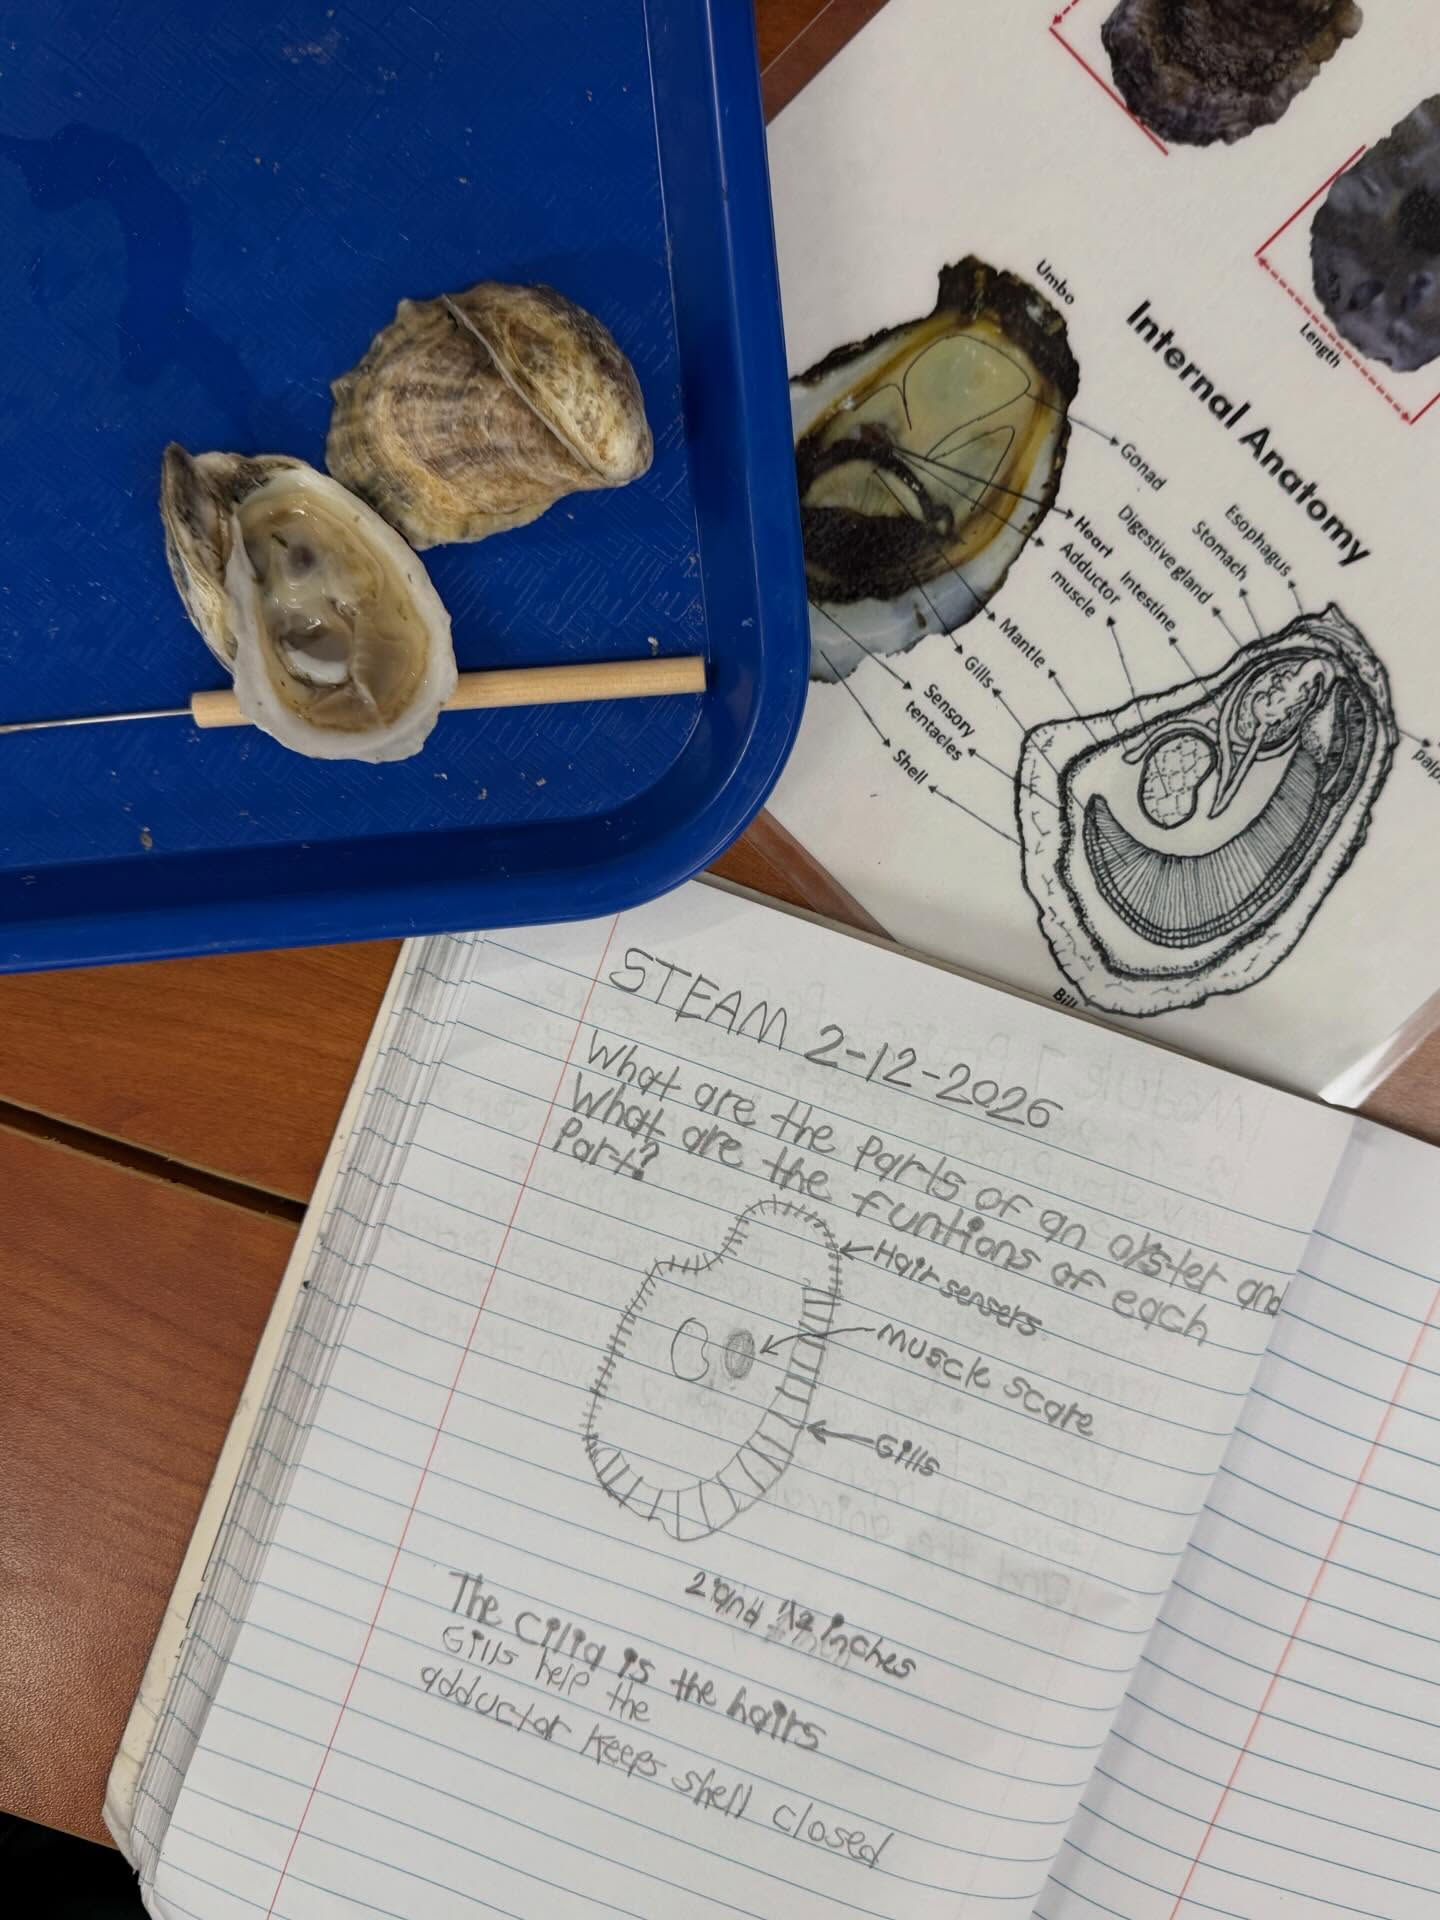 Umbo
Length
Internal Anatomy
Gonad
Heart
Adductor
muscle
Mantle
Gills
Sensory
tentacles
Shell
Esophagus
Stomach
Digestive gland
Intestine
palp
Bill
STEAM 2-12-2026
What are the Parts of an oyster and
What are the funtions of each
Part?
Hair sensers
Muscle scare
Gills
2 and 1/2 inches
The cilia is the hairs
Gills help the
adductor keeps shell closed